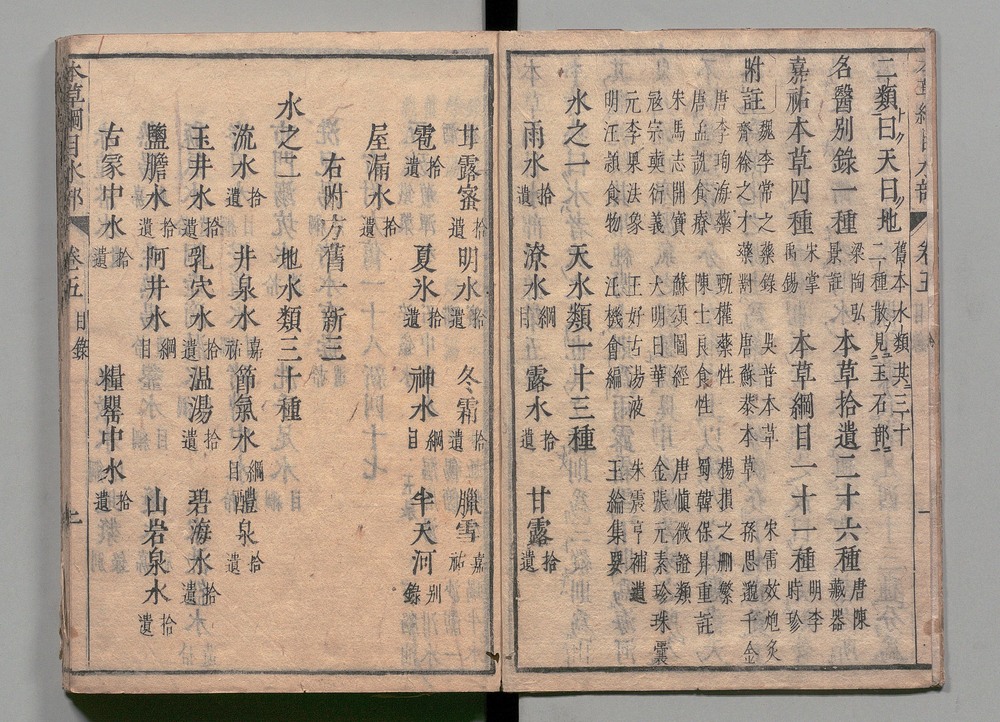 二類曰天曰地舊本水類共三十二種散見玉石部
名醫别錄一種梁陶弘景註 本草拾遺二十六種唐陳藏器
嘉祐本草四種宋掌禹錫 本草綱目一十一種明李時珍
附註魏李當之藥錄 吳普本草 宋雷斅炮炙
齊徐之才藥對 唐蘇恭本草 孫思邈千金
唐李珣海藥 甄權藥性 楊損之刪繁
唐孟詵食療 陳士良食性 蜀韓保昇重註
宋馬志開寶 蘇頌圖經 唐慎微證類
寇宗奭衍義 大明日華 金張元素珍珠囊
元李杲法象 王好古湯液 朱震亨補遺
明汪穎食物 汪機會編 王綸集要
水之一 天水類一十三種
雨水拾遺 潦水綱目 露水拾遺 甘露拾遺
甘露蜜拾遺 明水拾遺 冬霜拾遺 臘雪嘉祐
雹拾遺 夏氷拾遺 神水綱目 半天河别錄
屋漏水拾遺
右附方舊一新三
水之二 地水類三十種
流水拾遺 井泉水嘉祐 節氣水綱目 醴泉拾遺
玉井水拾遺 乳穴水拾遺 温湯拾遺 碧海水拾遺
鹽膽水拾遺 阿井水綱目 山岩泉水拾遺
古冢中水拾遺 糧罌中水拾遺
本草綱目水部 卷五 目錄